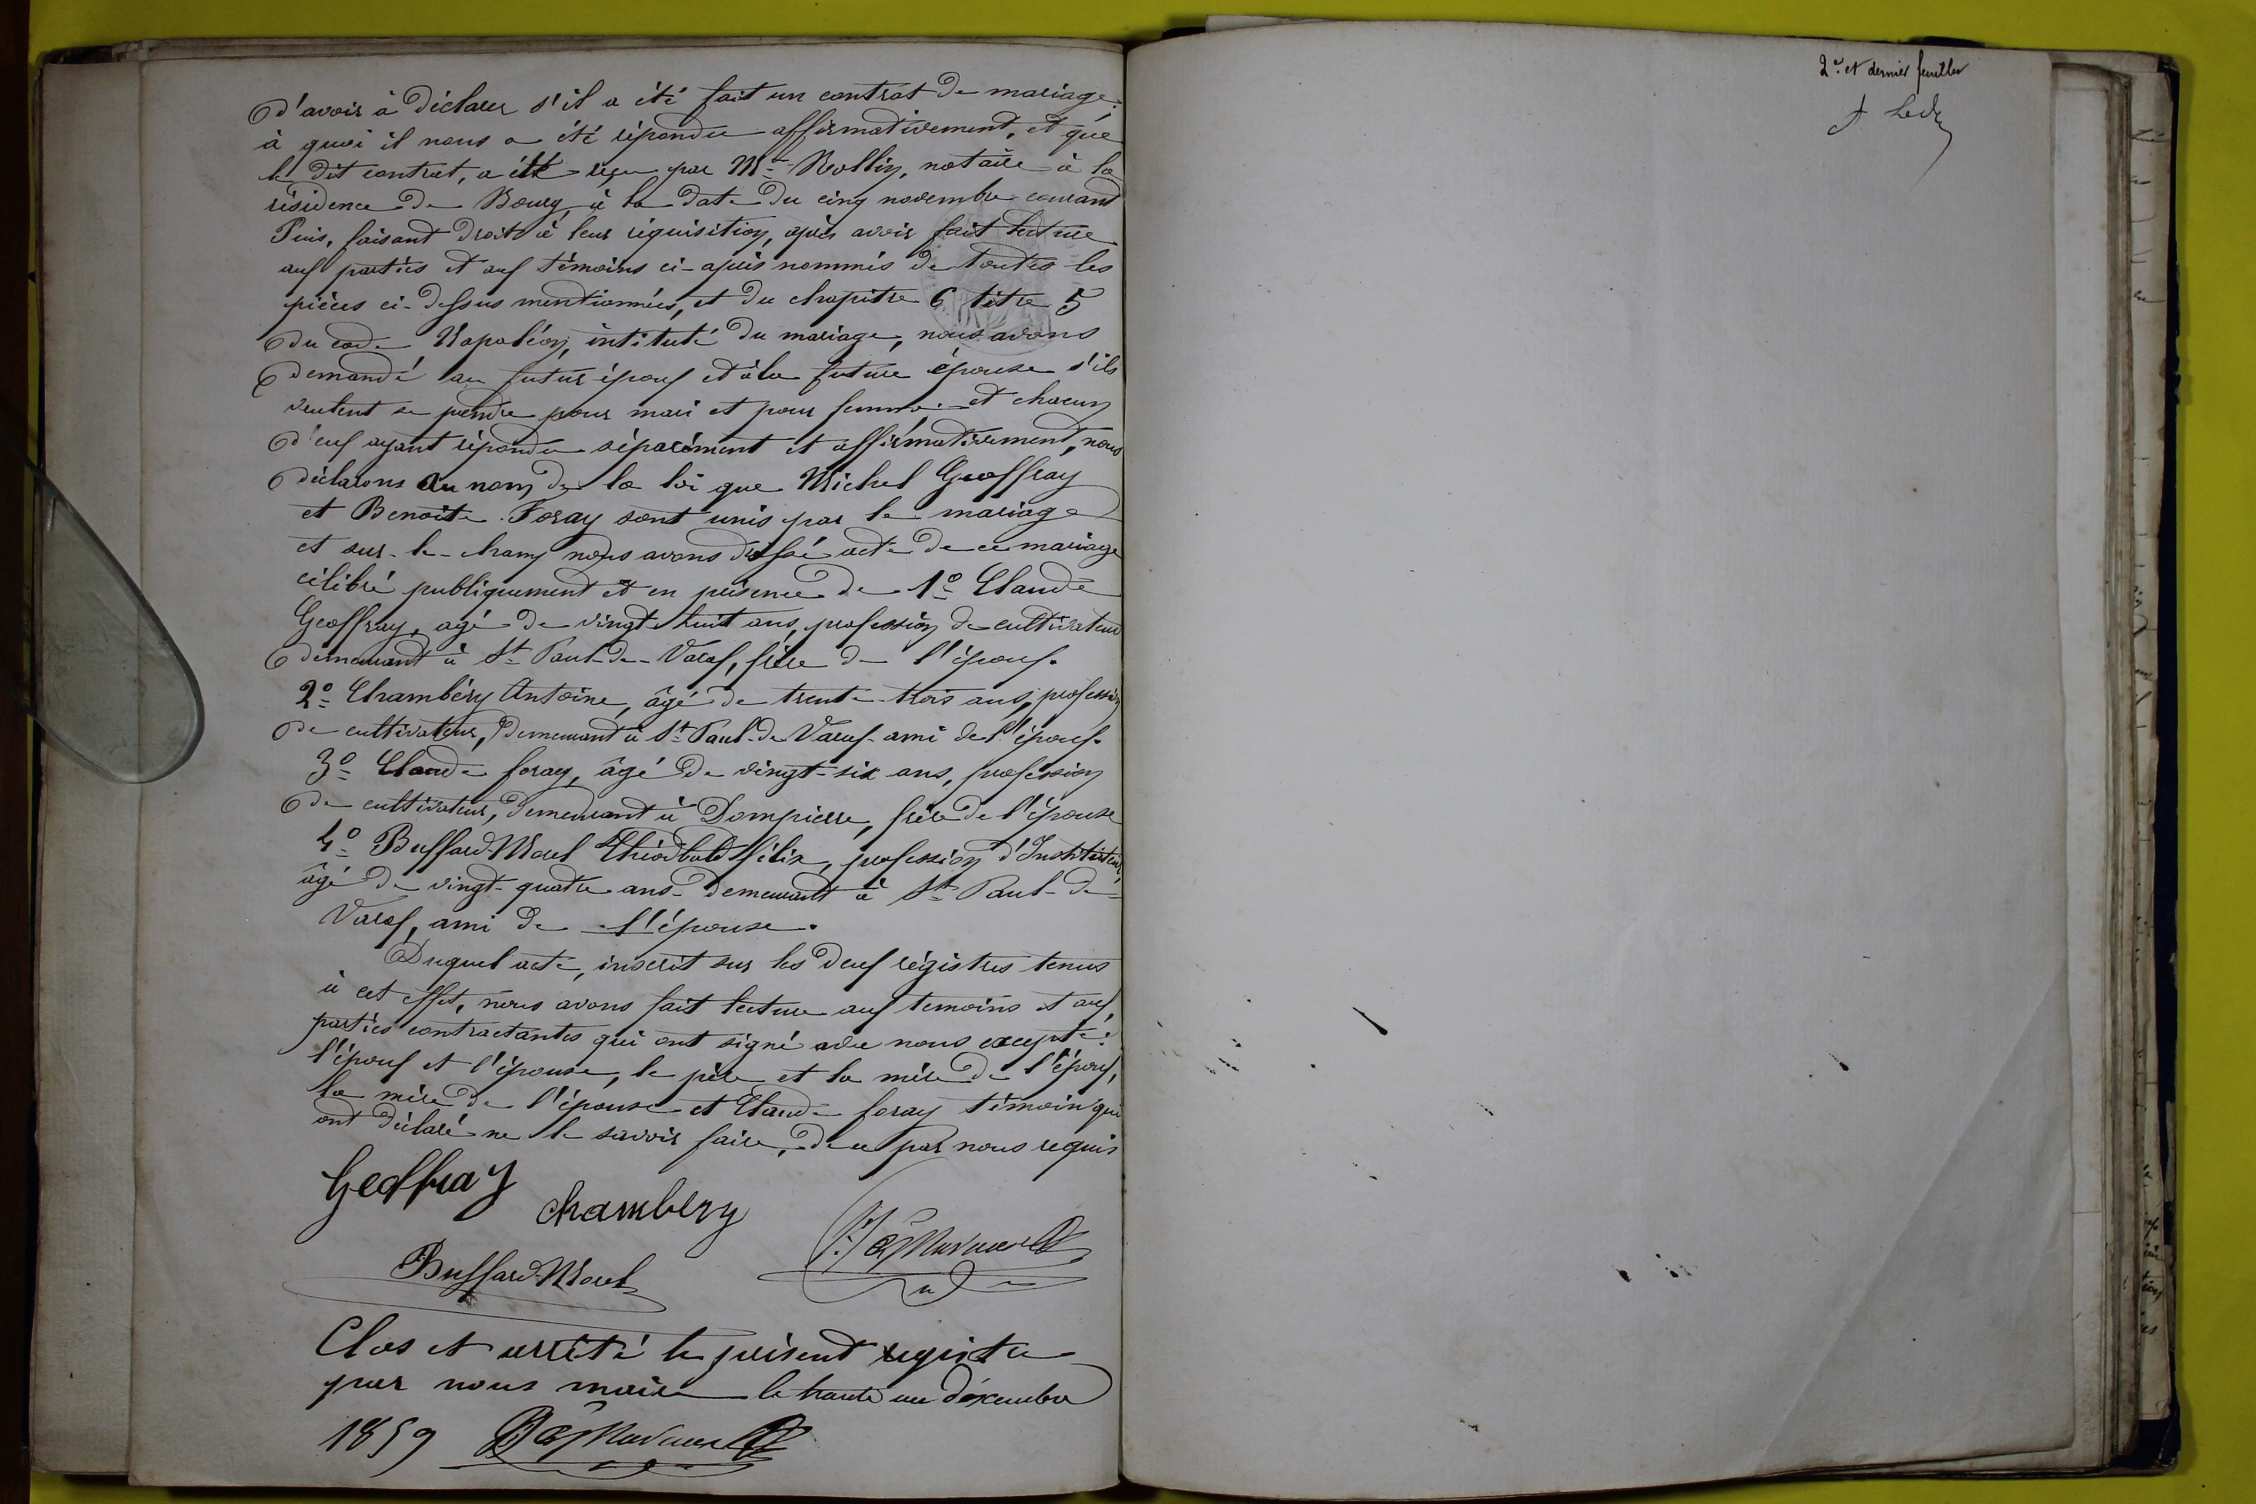 d'avoir à déclarer s'il a été fait un contrat de mariage.
à quoi il nous a été répondu affirmativement, et que
le dit contrat, a été reçu par Mt. Rollin, notaire à la
résidence de Bourg à la date du cinq novembre courant
Puis, faisant droit à leur réquisition, après avoir fait lecture
aux parties et aux témoins ci-après nommés de toutes les
pièces ci-dessus mentionnées, et du chapitre 6 titre 5
du code Napoléon, intitulé du mariage, nous avons
demandé au futur époux et à la future épouse s'ils
veulent se prendre pour mari et pour femme. et chacun
d'eux ayant répondu séparément et affirmativement, nous
déclarons au nom de la loi que Michel Geoffray
et Benoite Foray sont unis par le mariage
et sur-le-champ nous avons dressé acte de ce mariage
célébré publiquement et en présence de 1º Claude
Geoffray, agé de vingt-huit ans, profession de cultivateur
demeurant à St Paul-de-Varax, frère de l'époux.
2º Chambéry Antoine, âgé de trente-trois ans, profession
de cultivateur, demeurant à St Paul-de Varax-ami de l'époux.
3º Claude foray, âgé de vingt-six ans, profession
de cultivateur, demeurant à Dompierre, frère de l'épouse
4º Buffard-Morel Théodbald félix, profession d'Instituteur,
âgé de vingt-quatre ans-demeurant à St Paul-de-
Varax, ami de l'épouse.
Duquel acte, inscrit sur les deux régistres tenus
à cet effet, nous avons fait lecture aux temoins et aux
parties contractantes qui ont signé avec nous excepté:
l'époux et l'épouse, le père et la mère de l'époux,
la mère de l'épouse et Claude foray témoin qui
ont déclaré ne le savoir faire, de ce par nous requis
Geoffray
Chambéry
Buffard-Morel
Clos et arrêté le présent registre
par nous maire le trente un décembre
1859
2e et dernier feuillet